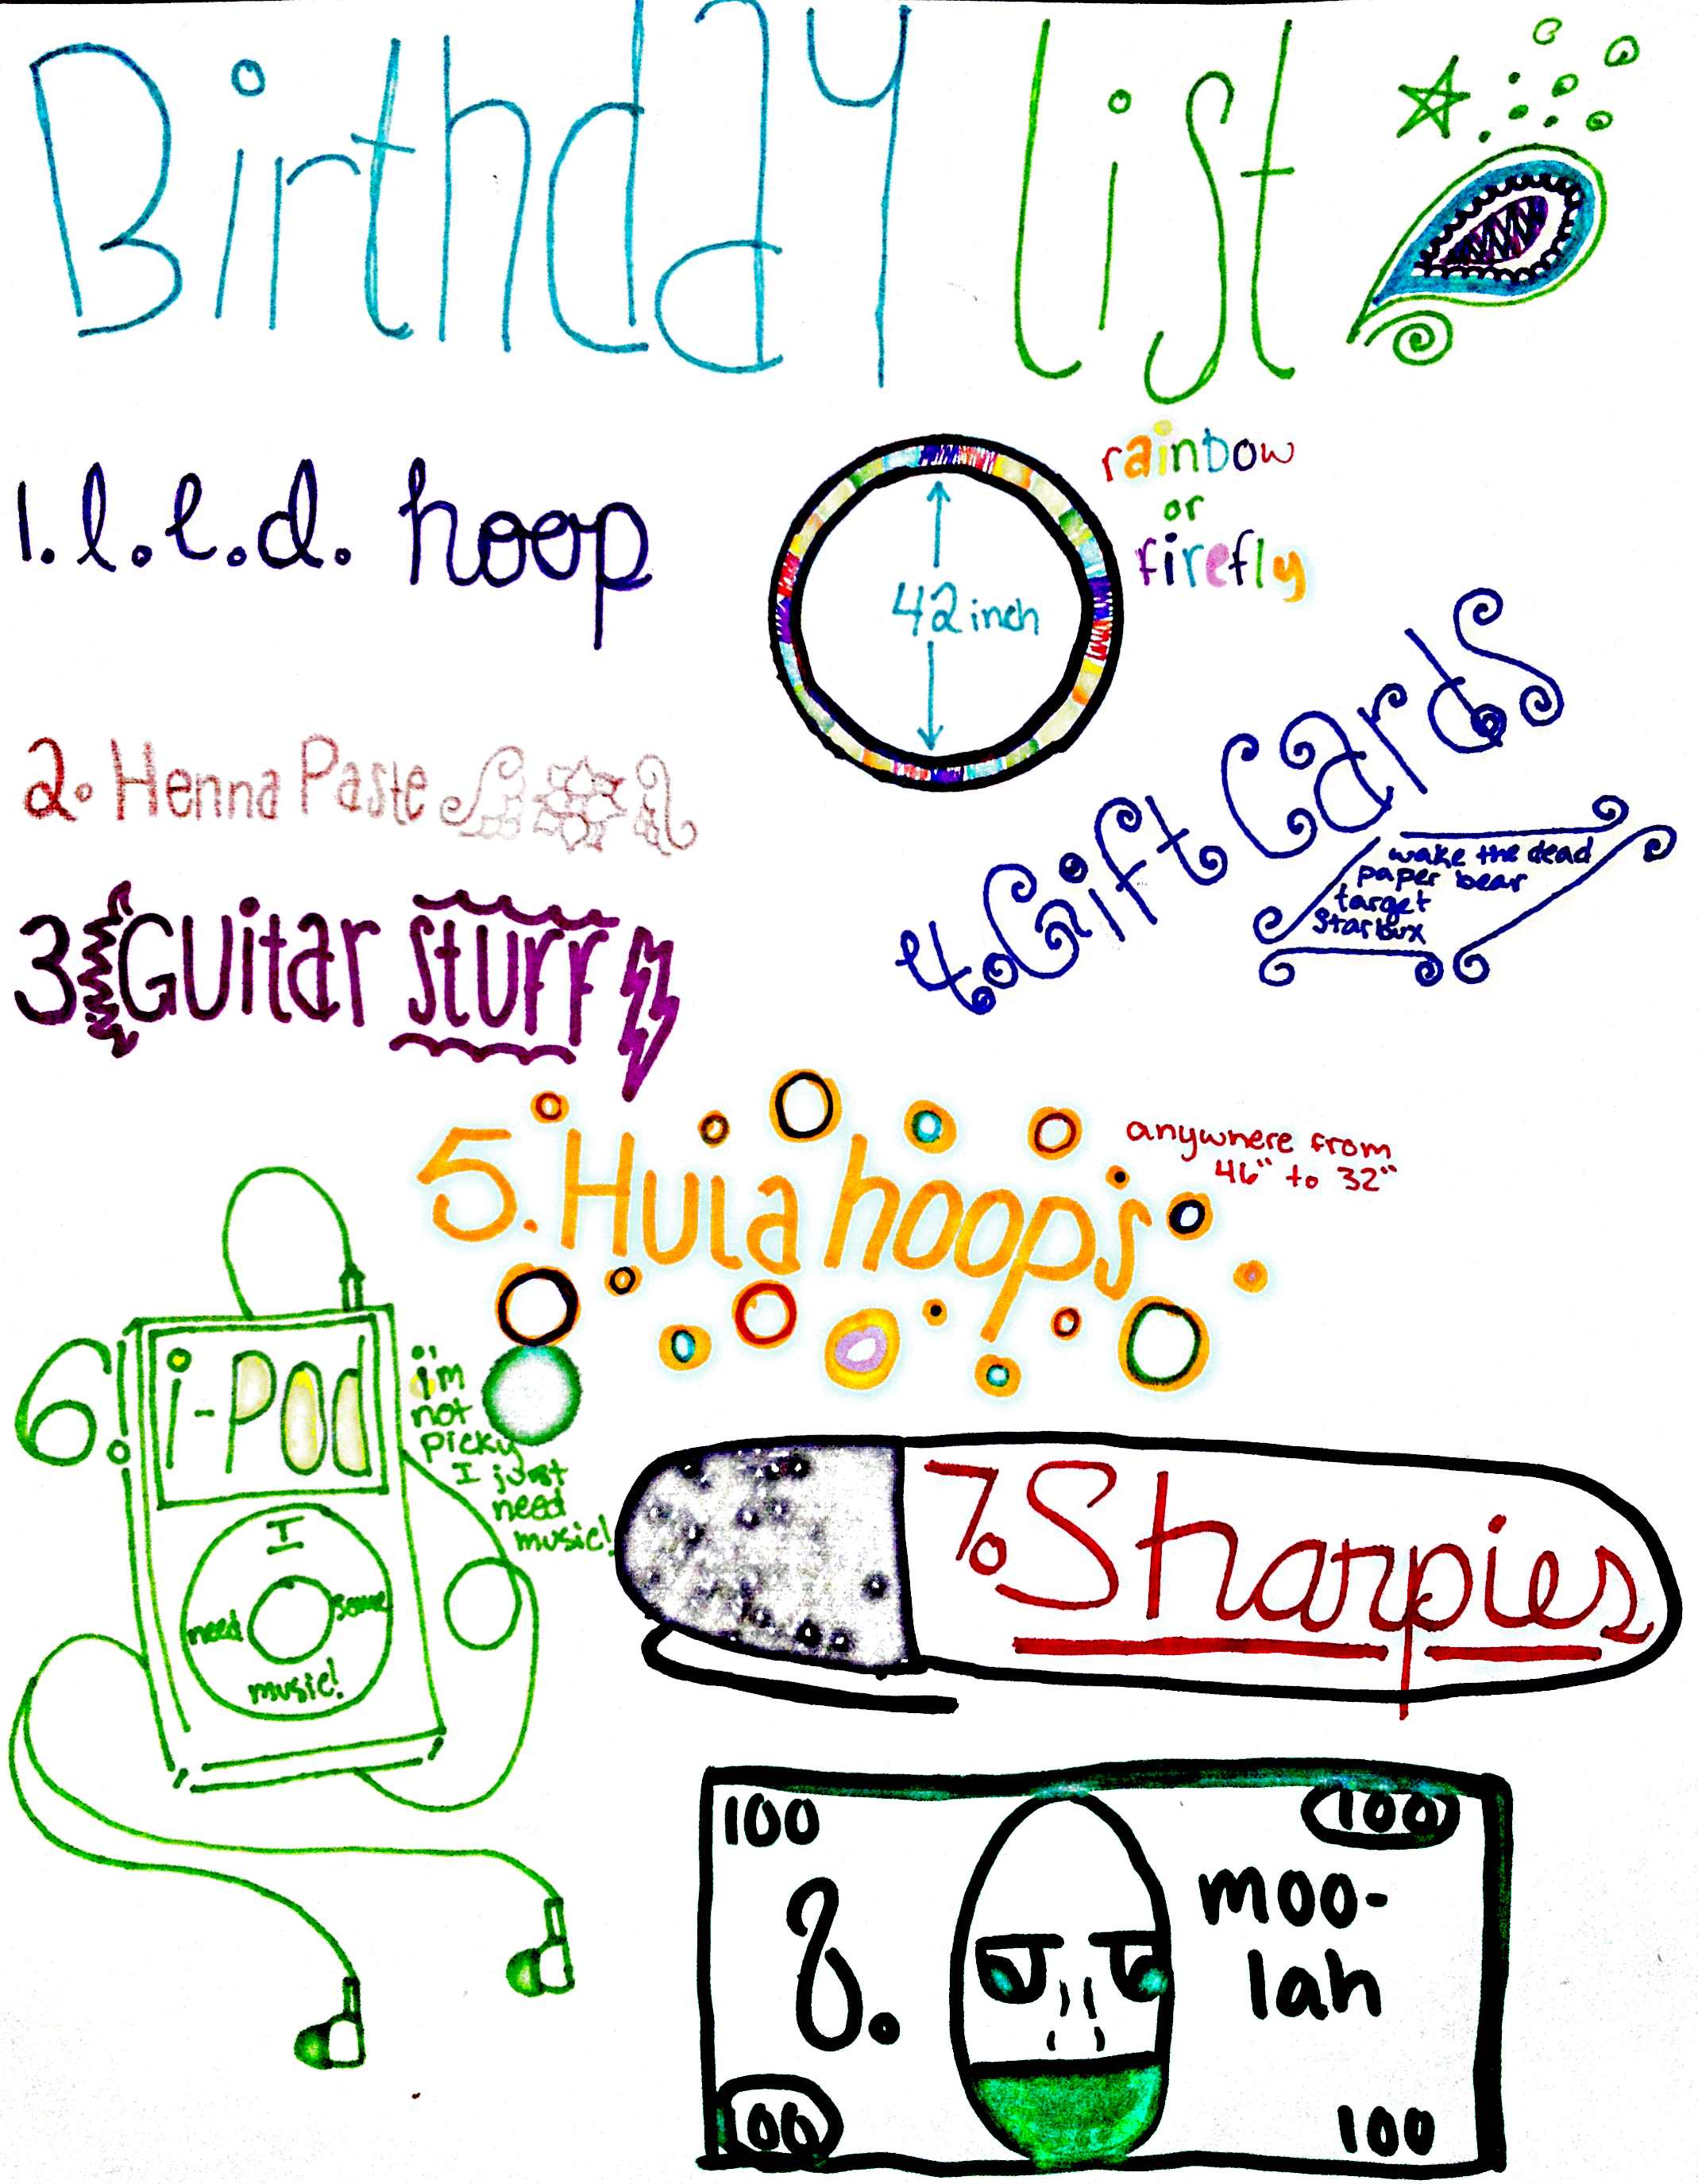 Birthday list
1. l.e.d. hoop
rainbow
or
firefly
42 inch
2. Henna Paste
3 Guitar stuff
4. Gift Cards
wake the dead
paper bear
target
starbux
5. Hula hoop's
anywhere from
46" to 32"
6.
i-Pod
i'm
not
picky
I just
need
music!
I
need some
music!
7. Sharpies
100 100
8. moo-
lah
100 100